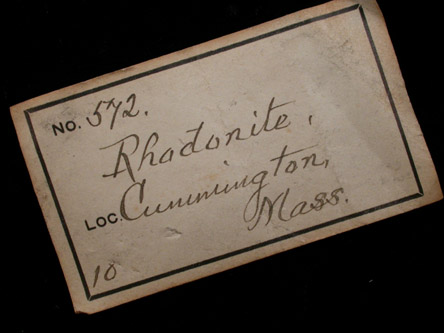 NO. 572.
Rhodonite,
LOC. Cummington,
Mass.
10